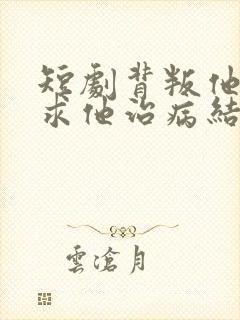 短劇背叛他
求他治病結
雲滄月